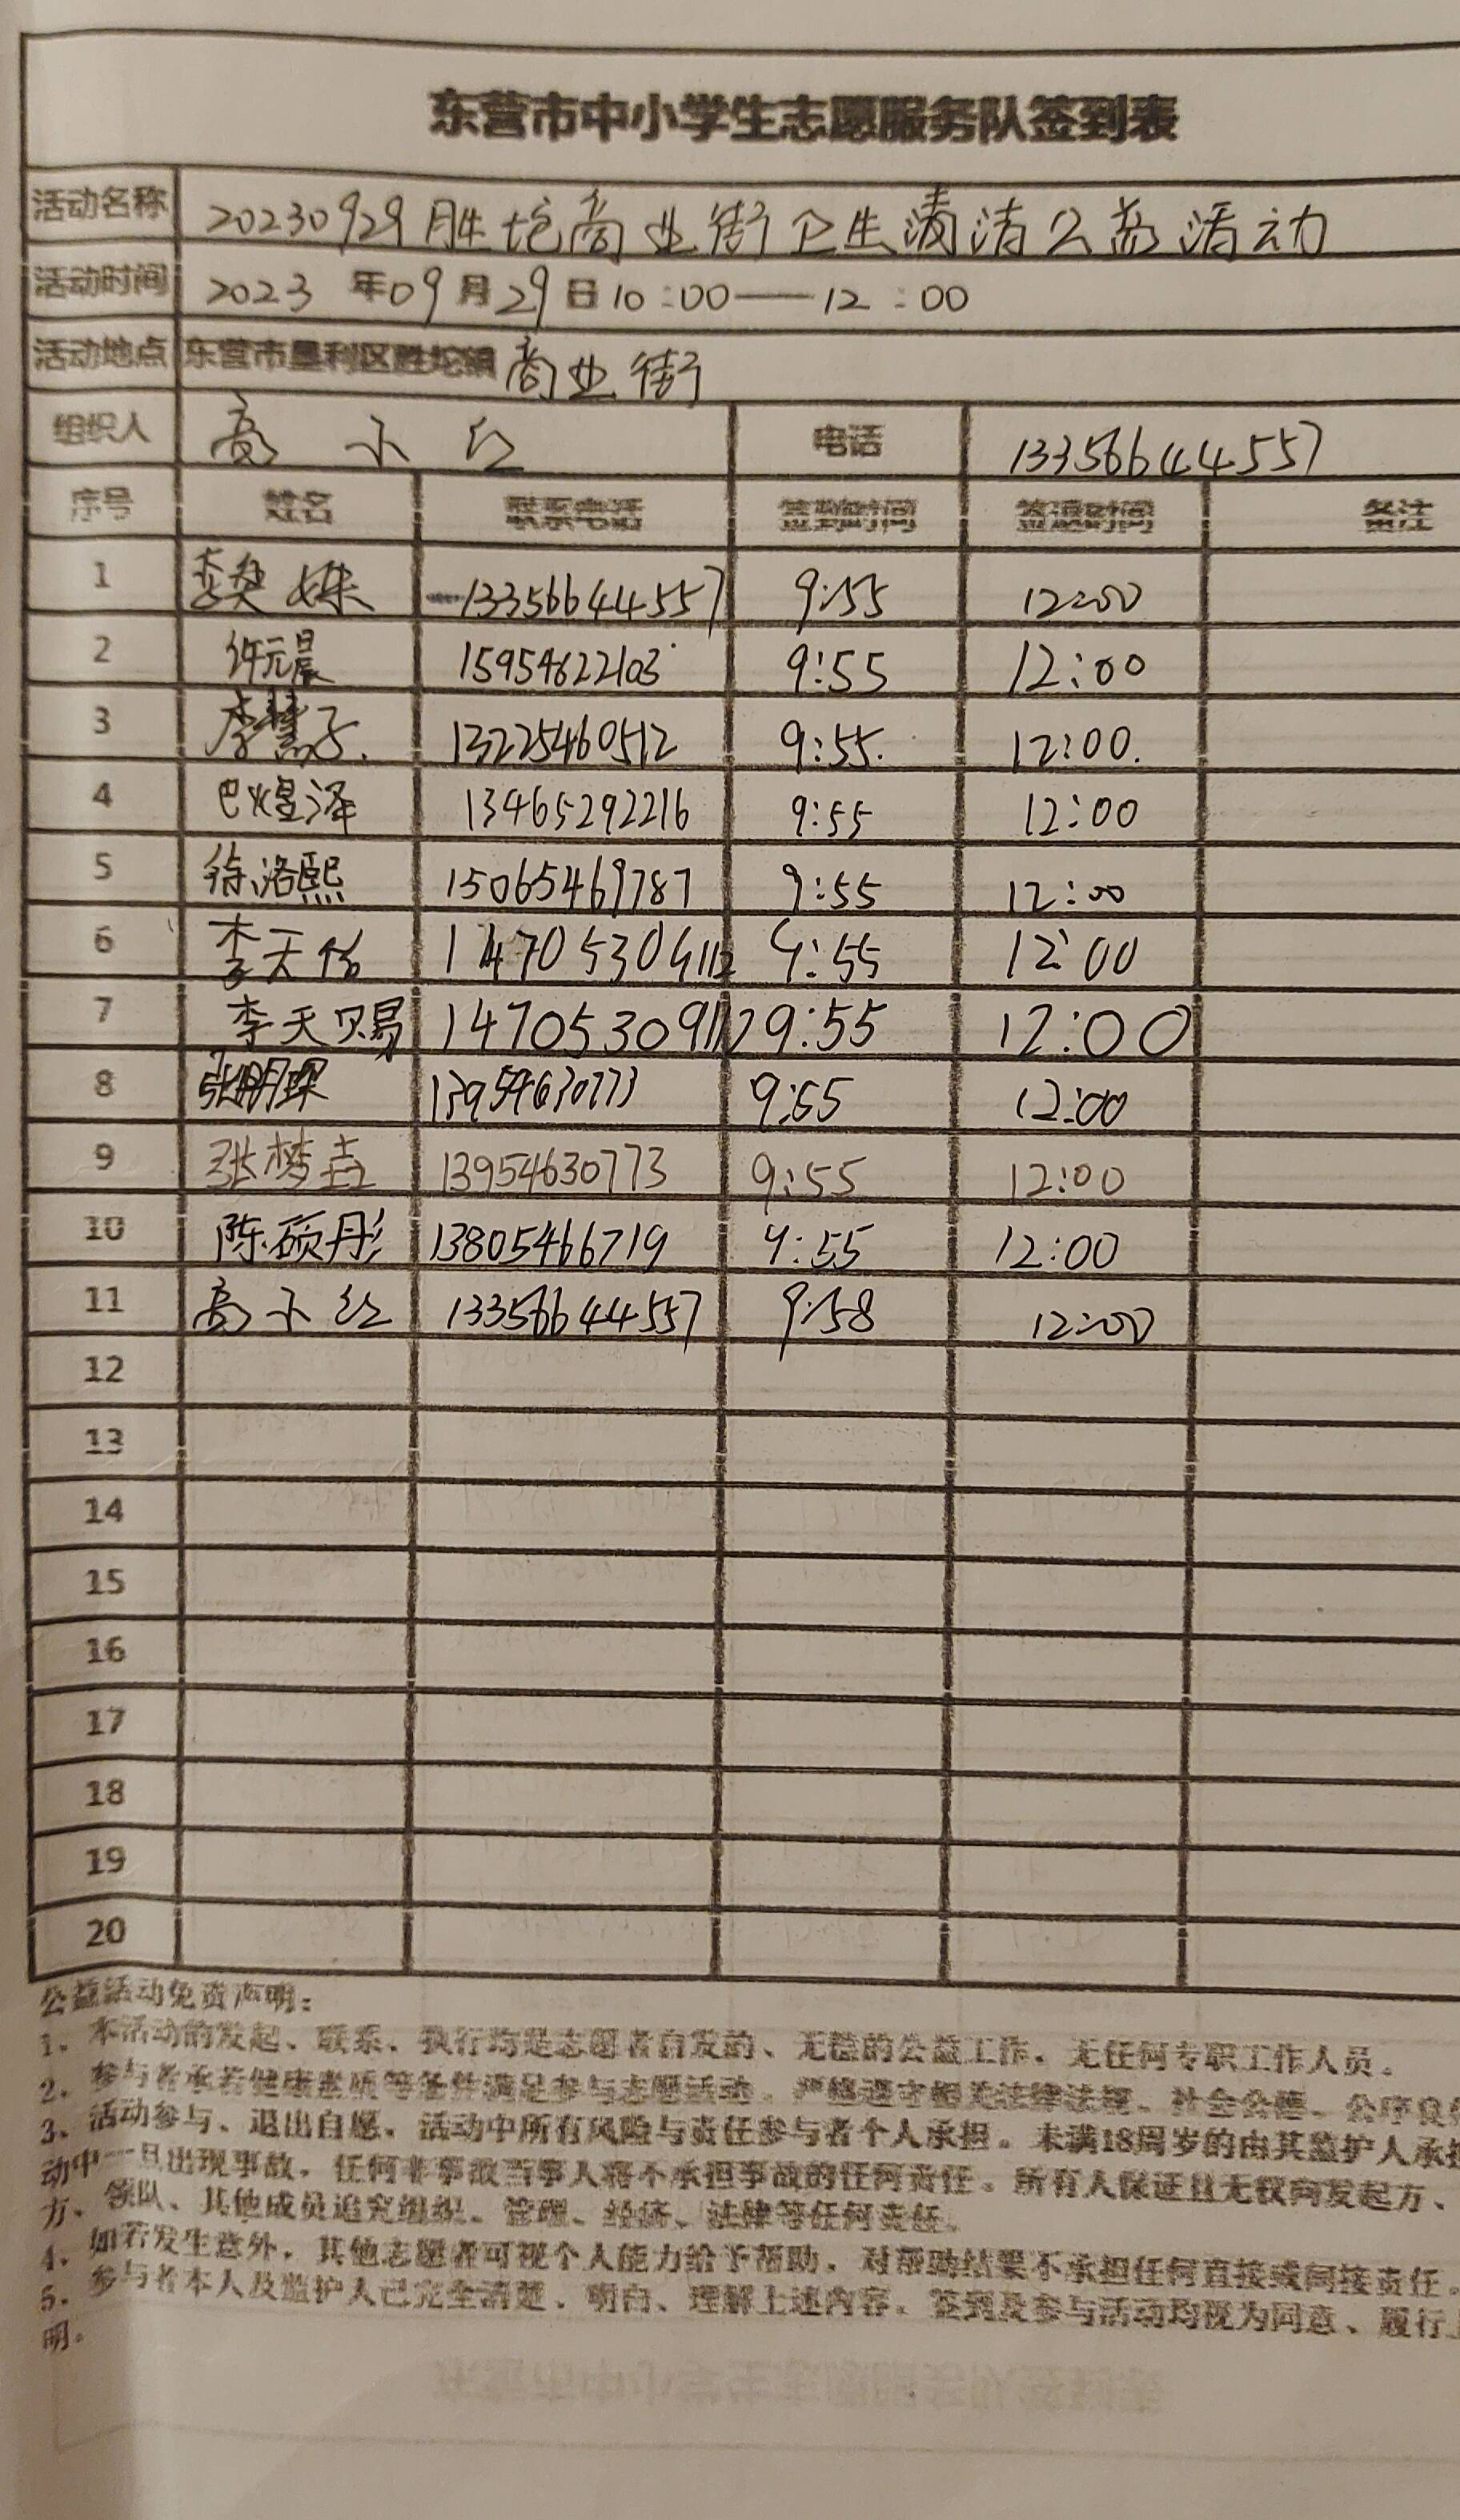 东营市中小学生志愿服务队签到表
活动名称 20230929胜坨商业街卫生清洁公益活动
活动时间 2023年09月29日10:00——12:00
活动地点 东营市垦利区胜坨镇商业街
组织人 高小红 电话 13356644557
序号 姓名 联系电话 签到时间 签退时间 备注
1 李奕姝 13356644557 9:55 12:00
2 许元晨 15954622103 9:55 12:00
3 李慧子 13225460512 9:55 12:00
4 巴煜泽 13465292216 9:55 12:00
5 徐洛熙 15065469787 9:55 12:00
6 李天佑 14705309112 9:55 12:00
7 李天赐 14705309112 9:55 12:00
8 张明琛 13954630773 9:55 12:00
9 张梦垚 13954630773 9:55 12:00
10 陈硕彤 13805466719 9:55 12:00
11 高小红 13356644557 9:58 12:00
12
13
14
15
16
17
18
19
20
公益活动免责声明：
1、本活动的发起、联系、执行均是志愿者自发的、无偿的公益工作，无任何专职工作人员。
2、参与者承若健康素质等条件满足参与志愿活动，严格遵守相关法律法规、社会公德、公序良俗
3、活动参与、退出自愿，活动中所有风险与责任参与者个人承担。未满18周岁的由其监护人承担
动中一旦出现事故，任何非事故当事人将不承担事故的任何责任。所有人保证且无权向发起方、
方、领队、其他成员追究组织、管理、经济、法律等任何责任。
4、如若发生意外，其他志愿者可视个人能力给予帮助，对帮助结果不承担任何直接或间接责任。
5、参与者本人及监护人已完全清楚、明白、理解上述内容，签到及参与活动均视为同意、履行
明。